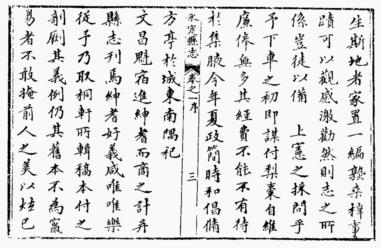 生斯地者家置一編熟桑梓事
蹟可以觀感激勸然則志之所
係豈徒以備 上憲之採問乎
予下車之初即謀付梨棗自維
廉俸無多其經費不能不有待
於集腋今年夏政簡時和倡脩
永定縣志 卷之一序 三
方亭於城東南隅祀
文昌魁宿進紳耆而商之計并
縣志刊焉紳耆好義咸唯唯樂
從予乃取桐軒所輯稿本付之
剞劂其義例仍其舊本不為竄
易者不敢掩前人之美以炫己